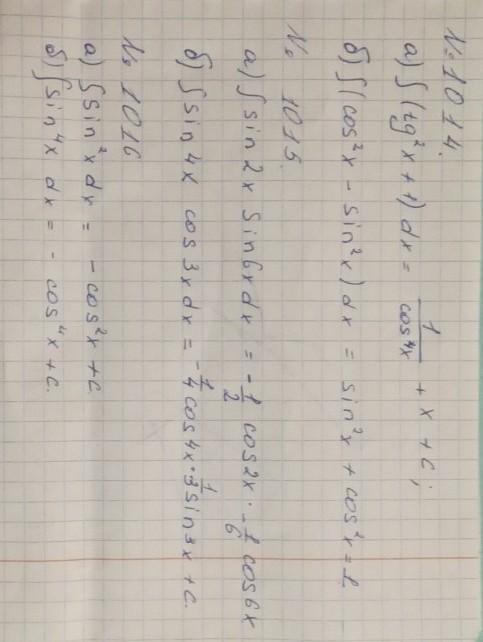 № 1014.
а) ∫(tg²x + 1) dx = 1/cos⁴x + x + c;
б) ∫(cos²x - sin²x) dx = sin²x + cos²x = 1
№ 1015.
а) ∫ sin 2x sin 6x dx = -1/2 cos 2x · -1/6 cos 6x
б) ∫ sin 4x cos 3x dx = -1/4 cos 4x · 1/3 sin 3x + c.
№ 1016
а) ∫ sin²x dx = - cos²x + c.
б) ∫ sin⁴x dx = - cos⁴x + c.